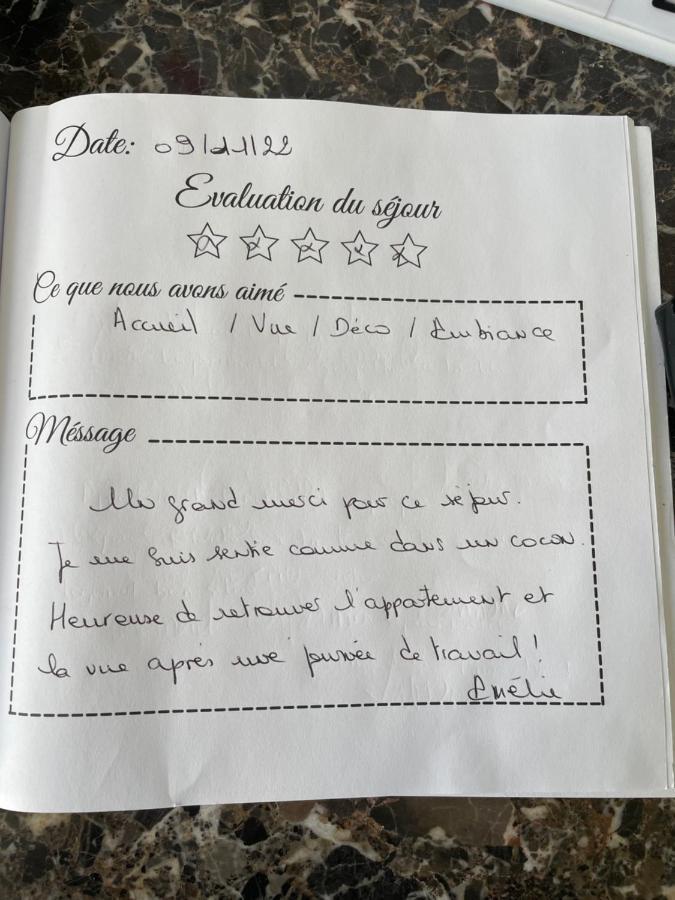 Date: 09/11/22
Evaluation du séjour
Ce que nous avons aimé
Accueil / Vue / Déco / Ambiance
Méssage
Un grand merci pour ce séjour.
Je me suis sentie comme dans un cocon.
Heureuse de retrouver l'appartement et
la vue après une journée de travail !
Amélie